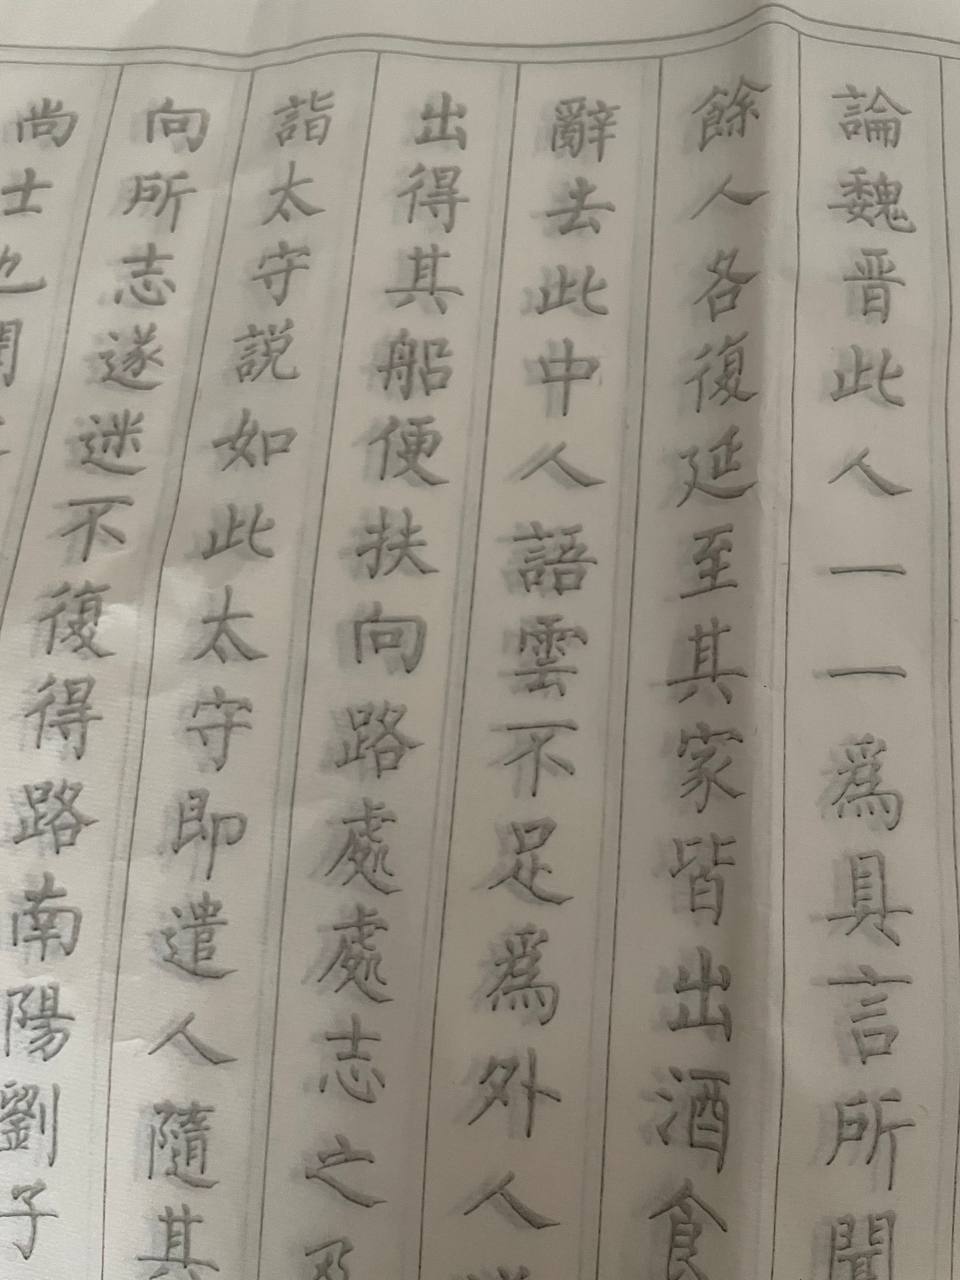 論魏晋此人一一爲具言所聞
餘人各復延至其家皆出酒食
辭去此中人語雲不足爲外人
出得其船便扶向路處處志之及
詣太守説如此太守即遣人隨其
向所志遂迷不復得路南陽劉子
尚士也聞